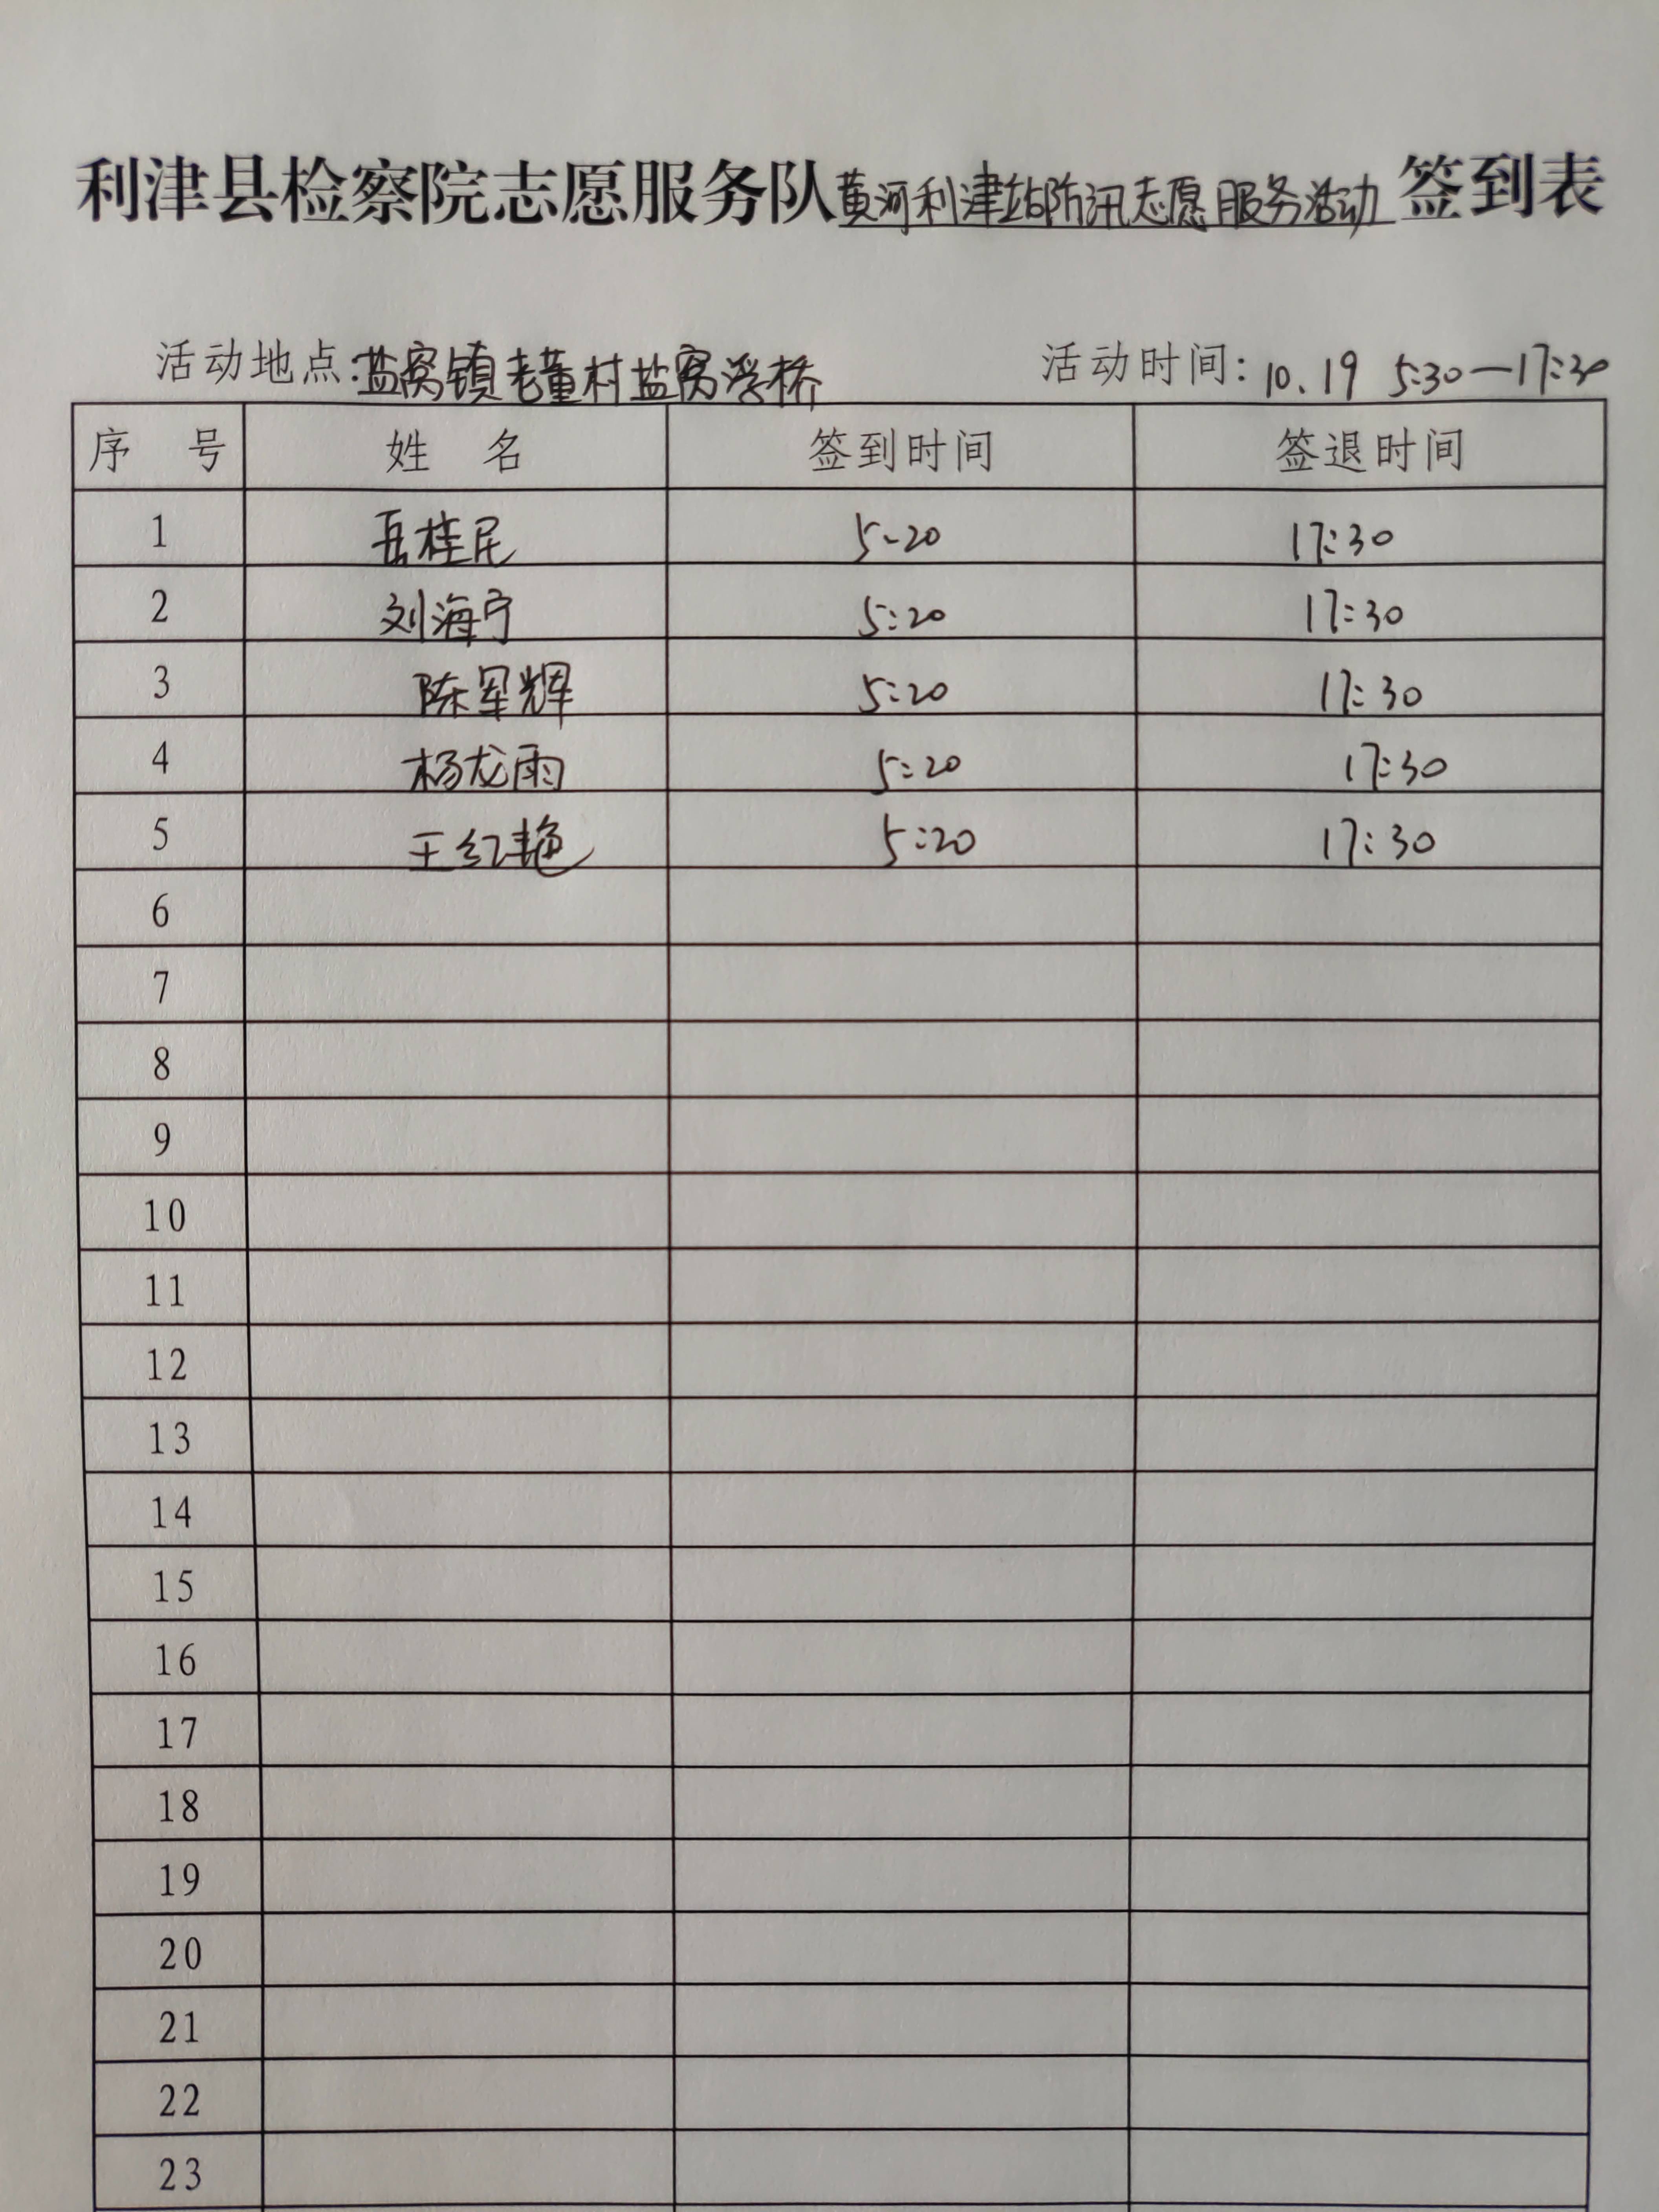 利津县检察院志愿服务队黄河利津站防汛志愿服务活动签到表
活动地点:盐窝镇老董村盐窝浮桥 活动时间:10.19 5:30—17:30
序 号 姓 名 签到时间 签退时间
1 岳桂民 5-20 17:30
2 刘海宁 5:20 17:30
3 陈军辉 5:20 17:30
4 杨龙雨 5:20 17:30
5 王红艳 5:20 17:30
6
7
8
9
10
11
12
13
14
15
16
17
18
19
20
21
22
23